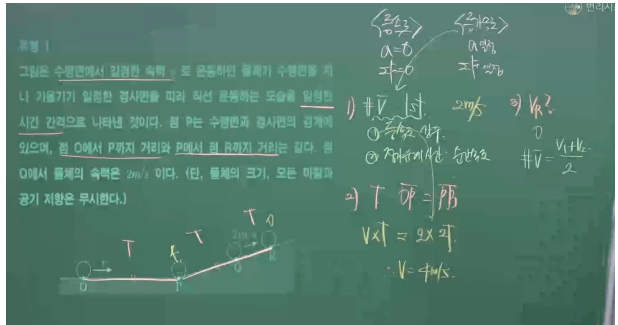 유형 1
그림은 수평면에서 일정한 속력 v 로 운동하던 물체가 수평면을 지
나 기울기가 일정한 경사면을 따라 직선 운동하는 모습을 일정한
시간 간격으로 나타낸 것이다. 점 P는 수평면과 경사면의 경계에
있으며, 점 O에서 P까지 거리와 P에서 점 R까지 거리는 같다. 점
Q에서 물체의 속력은 2m/s 이다. (단, 물체의 크기, 모든 마찰과
공기 저항은 무시한다.)
T
T
T
2m/s
O
P
Q
R
a=0
a 일정
1) # V
2m/s
①
②
3) VR?
0
# V = V1+V2 / 2
2) T OP = PR
V×T = 2×2T
∴ V = 4m/s.